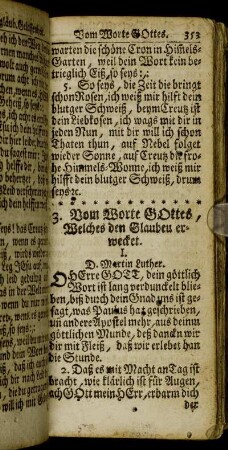 Vom Worte GOttes. 353
warten die schöne Cron im Him̃els-
Garten, weil dein Wort kein be-
trieglich Eiß, so seys :,:
5. So seys, die Zeit die bringt
schon Rosen, ich weiß mir hilft dein
blutger Schweiß, beym Creutz ist
dein Liebkosen, ich wags mit dir in
jeden Nun, mit dir will ich schon
Thaten thun, auf Nebel folget
wieder Sonne, auf Creutz die fro-
he Himmels-Wonne, ich weiß mir
hilfft dein blutger Schweiß, drum
seys ꝛc.
3. Vom Worte GOttes,
Welches den Glauben er-
wecket.
I.
D. Martin Luther.
O HErre GOTT, dein göttlich
Wort ist lang verdunckelt blie-
ben, biß durch dein Gnad uns ist ge-
sagt, was Paulus hat geschrieben,
un andere Apostel mehr, aus deinem
göttlichen Munde, deß danckn wir
dir mit Fleiß, daß wir erlebet han
die Stunde.
2. Daß es mit Macht an Tag ist
bracht, wie klärlich ist für Augen,
ach GOtt mein HErr, erbarm dich
der